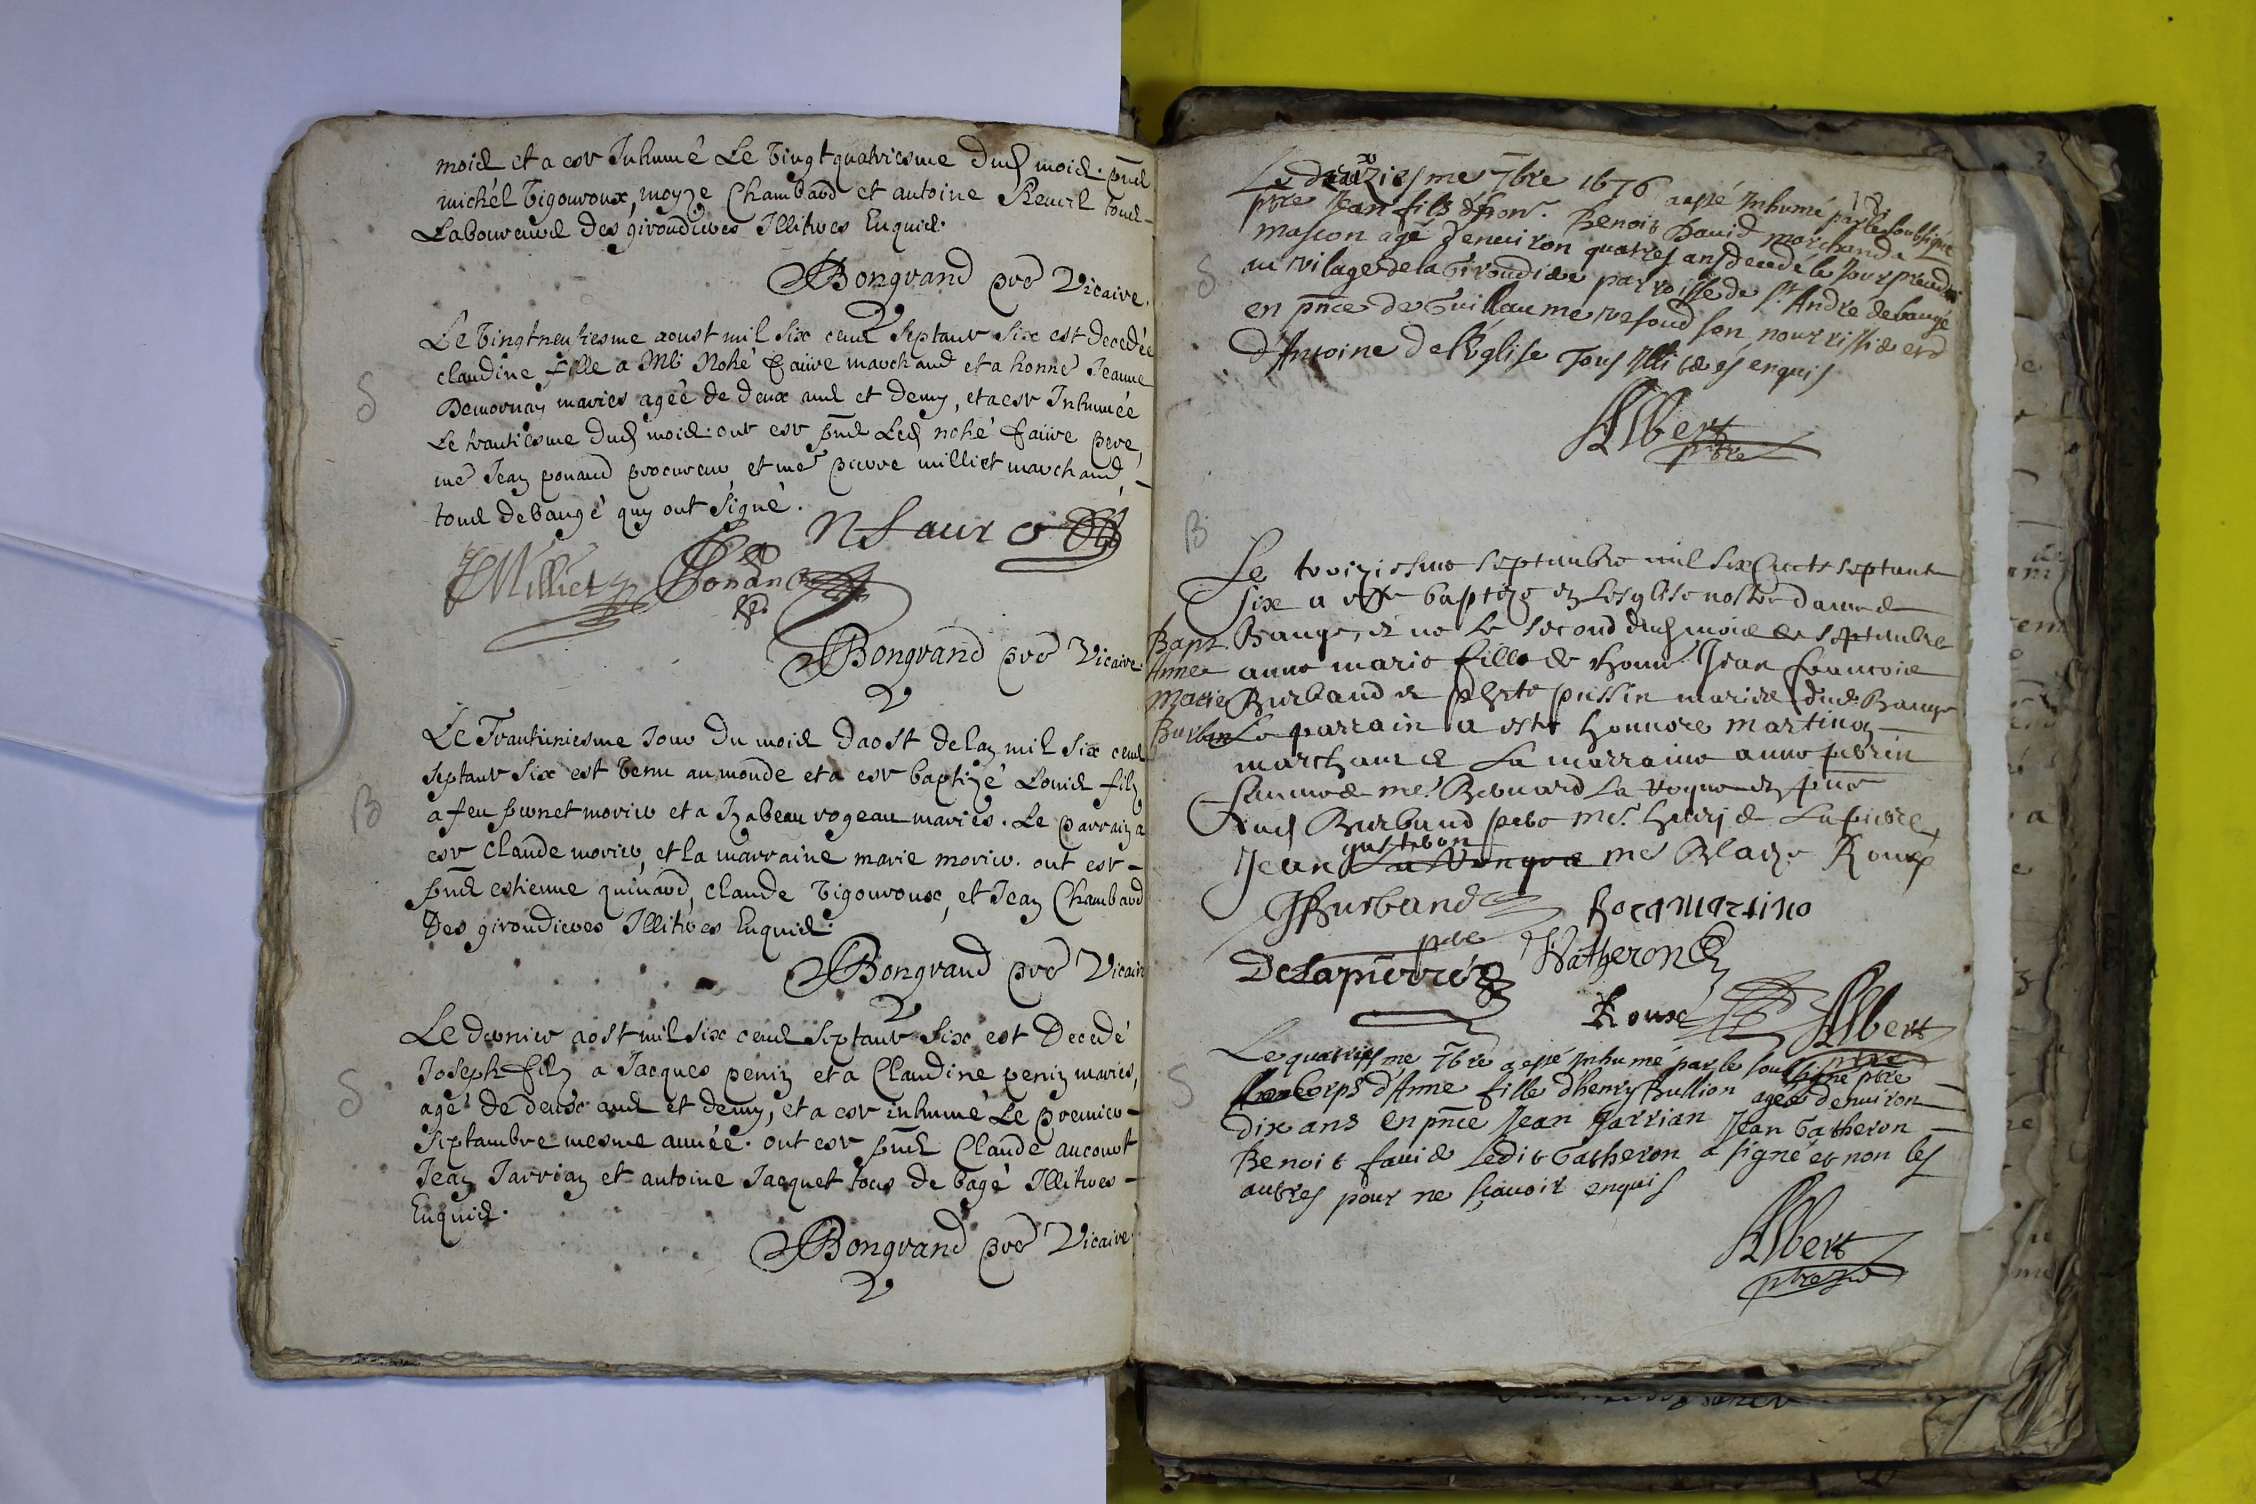 mois et a esté Inhumé Le vingt quatriesme dud mois. pñts
michél vigouroux, moyze Chambard et antoine Revril tous
Laboureurs des girondieres Illitres Enquis.
Bongrand pre Vicaire.
S
Le vingtneufiesme aoust mil six cens septante six est decedée
claudine fille a Mr Nohé faivre marchand et a honne Jeanne
Demornay mariés agéé de deux ans et demy, eta este Inhumée
Le trantiesme dud mois. ont este pñts Led nohé faivre pere,
me Jean ponard procureur et me pierre milliet marchand,
tous debaugé quy ont signé.
N faure
Milliet
Bongrand pre Vicaire.
B
Le Trantuniesme Jour du mois daost delan mil six cens
septante six est venu au monde eta este baptizé Louis filz
a feu pernet morier et a Izabeau rogeau mariés. Le parrain a
este claude morier, et la marraine marie morier. ont este
pñts estienne guinard, claude vigouroux, et Jean Chambard
Des girondieres Illitres Enquis.
Bongrand pre Vicaire
S
Le dernier aost mil six cens septante six est Decedé
Joseph filz a Jacques penin et a Claudine penin mariés,
agé de deux ans et demy, et a este inhumé Le premier
Septambre mesme année. ont este pñts Claude aucourt
Jean Jarrian et antoine Jacquet tous de bagé Illitres
Enquis.
Bongrand pre Vicaire
18
Le deuxiesme 7bre 1676 a esté Inhumé par le soubsigné
pbre Jean fils d'hon. Benoit David marchand a
S
mascon agé d'enuiron quatres ans decedé le Jour precedt
au vilage de la Girondiere parroisse de St André de baugé
en pnce de Guillaume refond son nourrissier et d
d'Antoine de l'Eglise Tous Illiteres enquis
Albert
pbre
B
Le troiziesme septembre mil six Cents septante
six a este baptize en Lesglise nostre dame de
Bauge, et ne Le second dud mois de septembre
Bapt.
Anne
Marie
Burban
anne marie fille de honn. Jean francois
Burband et pussin maries dud Bauge
Le parrain a este honnore martinon
marchant et La marraine anne perrin
femme de me. Benuard La
dud Burband pere me. henrj de Lapierre,
gastebon
Jean me Blaize Roux
JBurband
pre
DeLapierre
JGatheron
Roux
Albert
pbre
S
Le quatriesme 7bre a esté Inhumé par le soubsigné pbre
le corps d'Anne fille d'henry Bullion agée denuiron
dix ans en pnce Jean Jarrian Jean Gatheron
Benoit favie Ledit Gatheron a signé et non les
autres pour ne sçauoir enquis
Albert
pbre